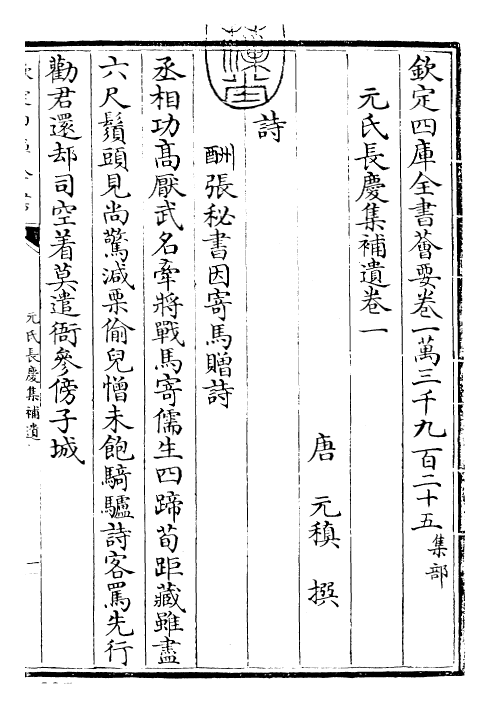 欽定四庫全書薈要卷一萬三千九百二十五 集部
元氏長慶集補遺卷一
唐 元稹 撰
詩
酬張秘書因寄馬贈詩
丞相功髙厭武名牽將戰馬寄儒生四蹄荀距藏雖盡
六尺鬚頭見尚驚減栗偷兒憎未飽騎驢詩客罵先行
勸君還却司空着莫遣衙參傍子城
元氏長慶集補遺
一